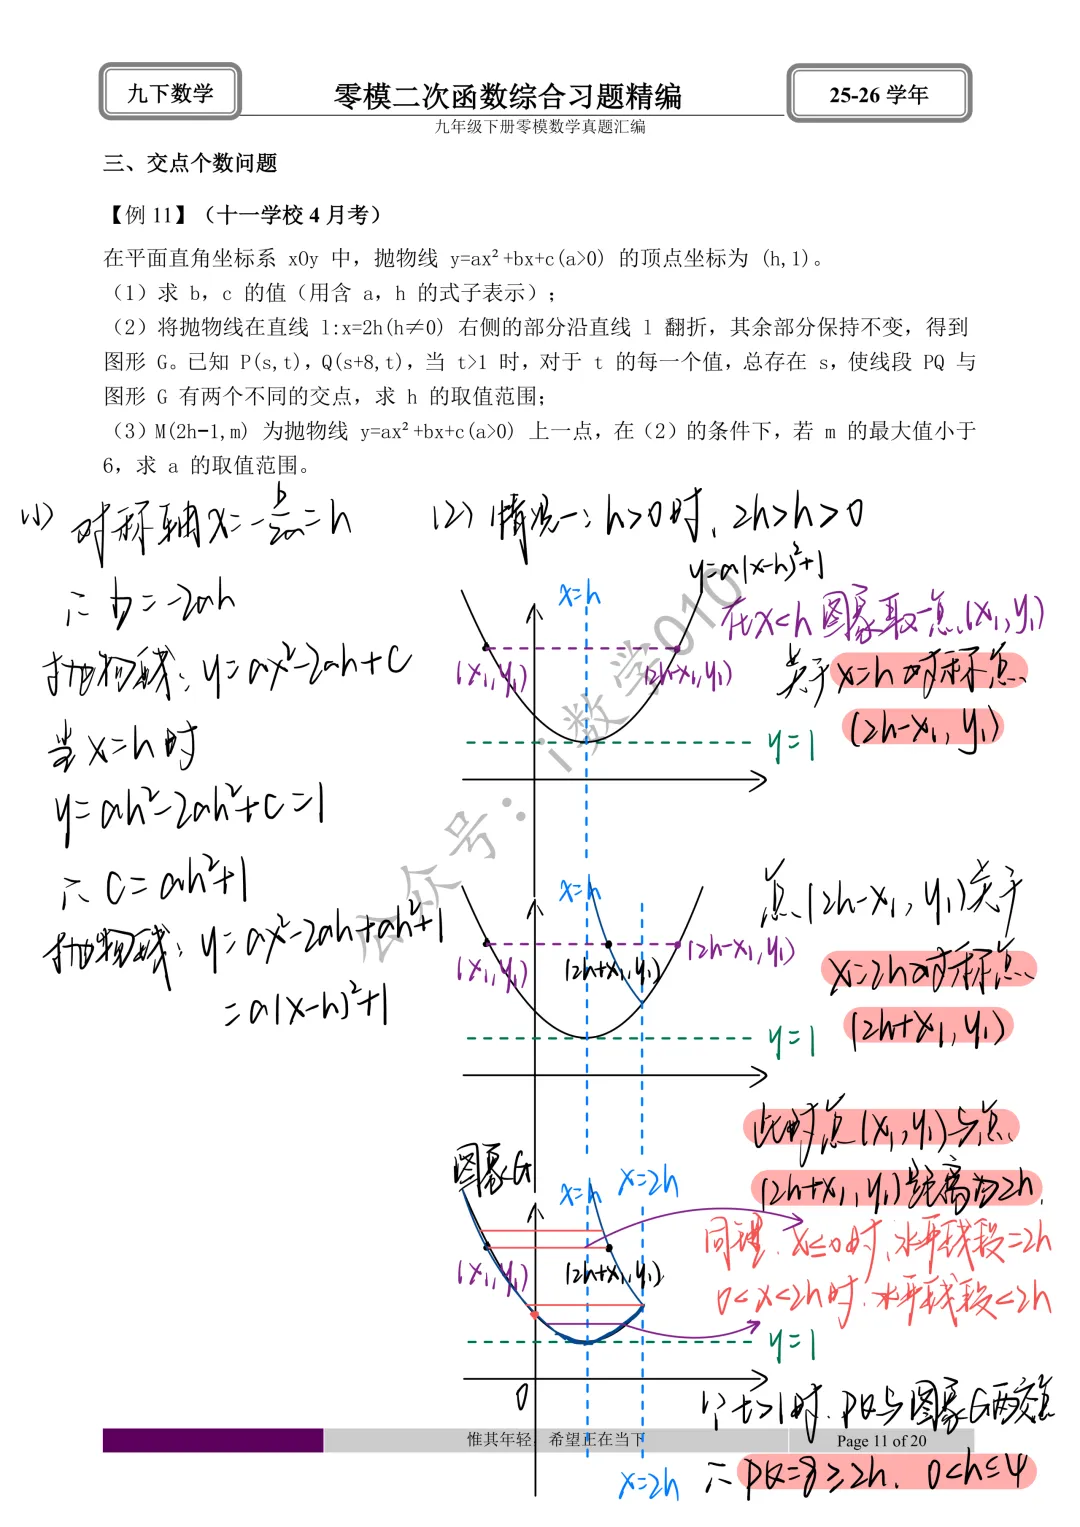 九下数学
零模二次函数综合习题精编
25-26 学年
九年级下册零模数学真题汇编
三、交点个数问题
【例 11】（十一学校 4 月考）
在平面直角坐标系 xOy 中，抛物线 y=ax²+bx+c(a>0) 的顶点坐标为 (h,1)。
（1）求 b，c 的值（用含 a，h 的式子表示）；
（2）将抛物线在直线 l:x=2h(h≠0) 右侧的部分沿直线 l 翻折，其余部分保持不变，得到
图形 G。已知 P(s,t)，Q(s+8,t)，当 t>1 时，对于 t 的每一个值，总存在 s，使线段 PQ 与
图形 G 有两个不同的交点，求 h 的取值范围；
（3）M(2h-1,m) 为抛物线 y=ax²+bx+c(a>0) 上一点，在（2）的条件下，若 m 的最大值小于
6，求 a 的取值范围。
(1) 对称轴 x=-b/2a=h
∴ b=-2ah
抛物线：y=ax²-2ah+c
当x=h时
y=ah²-2ah²+c=1
∴ c=ah²+1
抛物线：y=ax²-2ah+ah²+1
=a(x-h)²+1
(2) 情况一：h>0时，2h>h>0
y=a(x-h)²+1
x=h
在x<h图象取一点(x₁,y₁)
(x₁,y₁)
(2h-x₁,y₁)
关于x=h对称点
(2h-x₁,y₁)
y=1
x=h
点(2h-x₁,y₁)关于
(x₁,y₁)
(2h+x₁,y₁)
(2h-x₁,y₁)
x=2h对称点
(2h+x₁,y₁)
y=1
此时点(x₁,y₁)与点
(2h+x₁,y₁)距离为2h.
图象G
x=h
x=2h
同理，x≤0时，水平线段=2h
(x₁,y₁)
(2h+x₁,y₁)
0<x<2h时，水平线段<2h
y=1
0
个t>1时，PQ与图象G两交点
∴ PQ=8≥2h，0<h≤4
x=2h
惟其年轻，希望正在当下
Page 11 of 20
公众号：i数学010